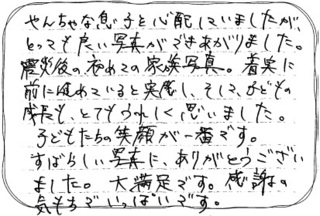 やんちゃな息子と心配していましたが、
とっても良い写真ができあがりました。
震災後の初めての家族写真。着実に
前に進めていると実感し、そして、子どもの
成長も、とてもうれしく思いました。
子どもたちの笑顔が一番です。
すばらしい写真に、ありがとうござい
ました。大満足です。感謝の
気もちでいっぱいです。